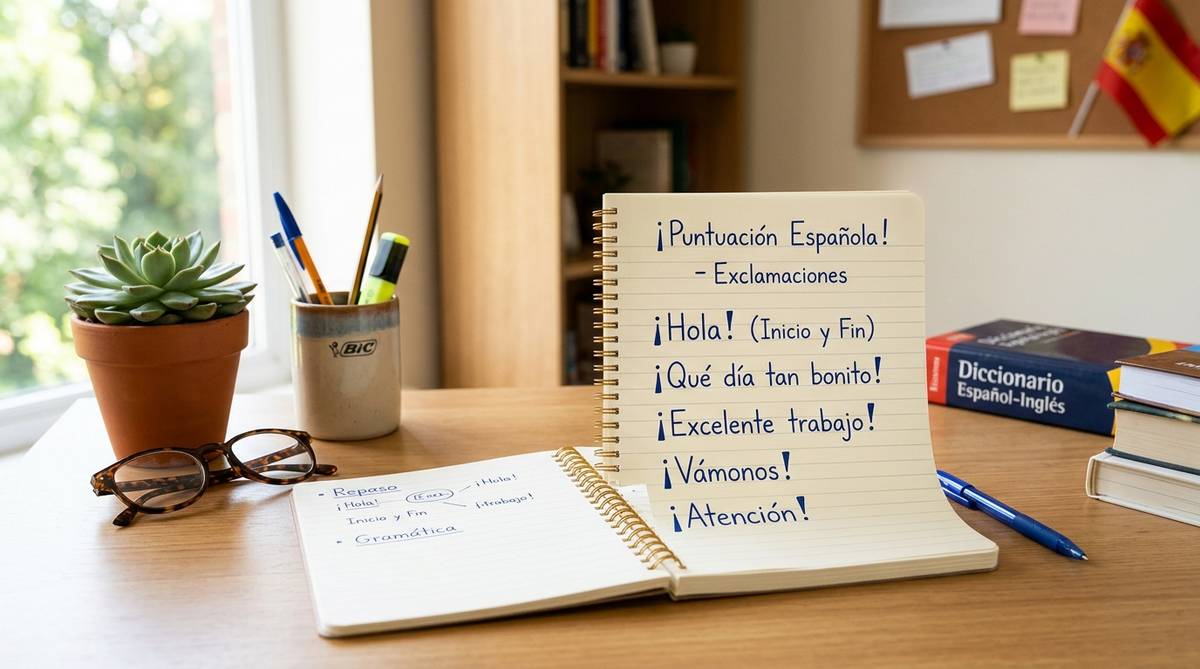 ¡Puntuación Española!
- Exclamaciones
¡Hola! (Inicio y Fin)
¡Qué día tan bonito!
¡Excelente trabajo!
¡Vámonos!
¡Atención!
• Repaso
¡Hola!
¡Hola!
¡trabajo!
Inicio y Fin
• Gramática
BIC
Diccionario
Español-Inglés